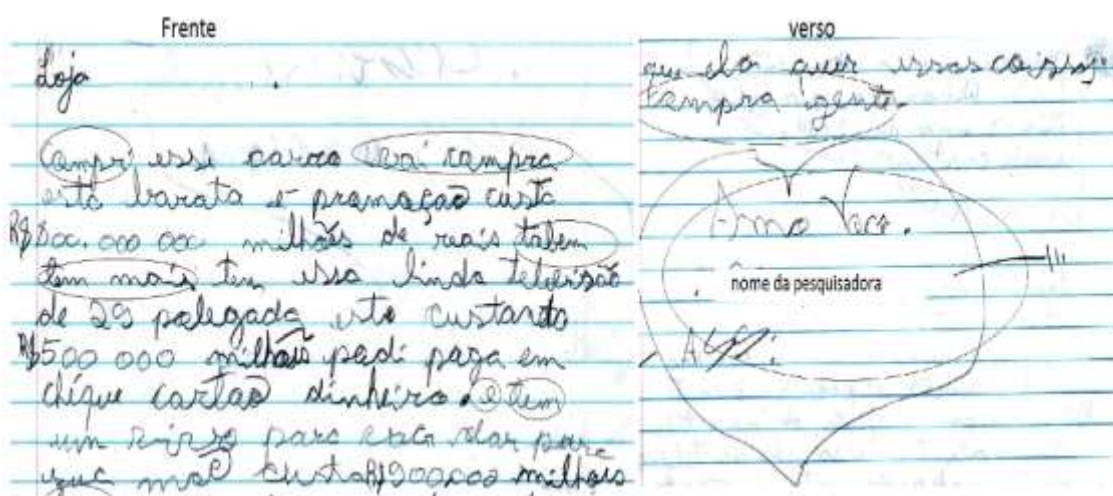 Frente
Loja
Compri essi carro vai compra
esta barata é promoção custa
R$800.000 000 milhões de reais tabem
tem mais tem essa linda televisão
de 29 polegada esta custando
R$500 000 milhões podi paga em
chéque cartão dinheiro. e tem
um para você dar para
sua mãe custa R$900.000 milhões
verso
que ela quer essas coisas
compra gente
Amo Você.
nome da pesquisadora